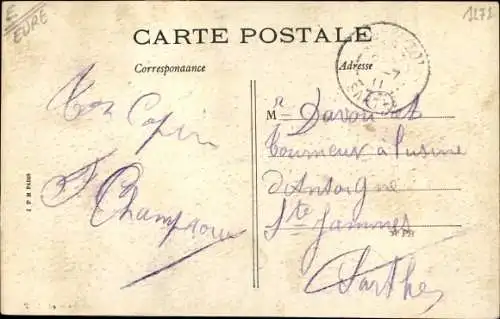 E
EURE
1272
CARTE POSTALE
Correspondance
Adresse
Ton Copin
F Champion
Mr Davoust
tourneur à l'usine
d'Antoigné
Ste Jammes
Sarthe